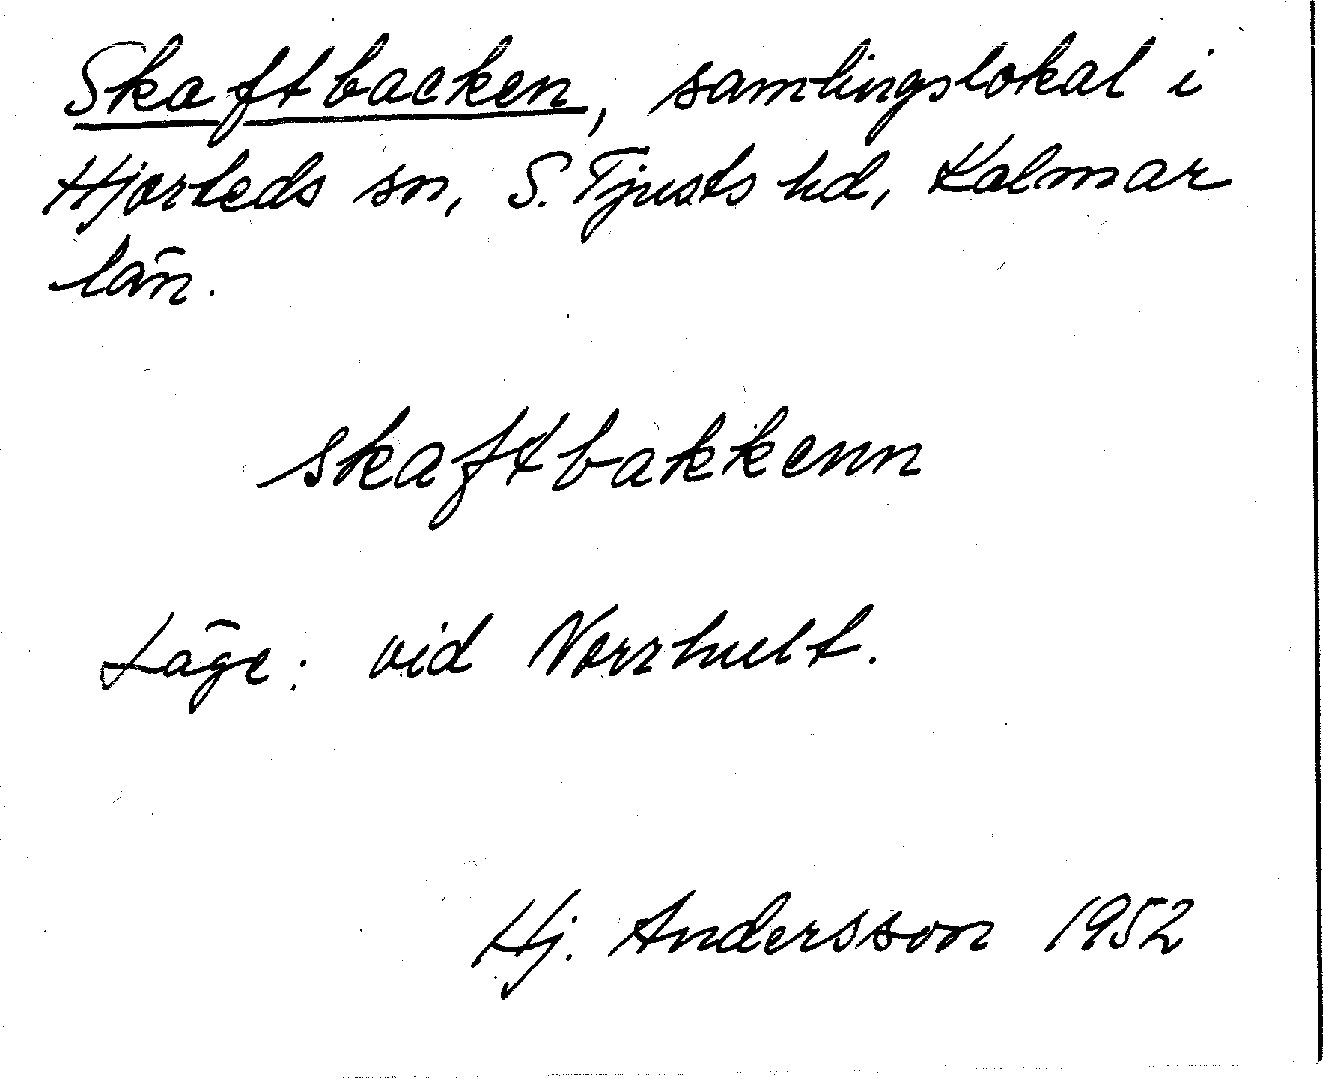 Skaftbacken, samlingslokal i
Hjorteds sn, S. Tjusts hd, Kalmar
län.
skaftbakkenn
Läge: vid Norrhult.
Hj. Andersson 1952